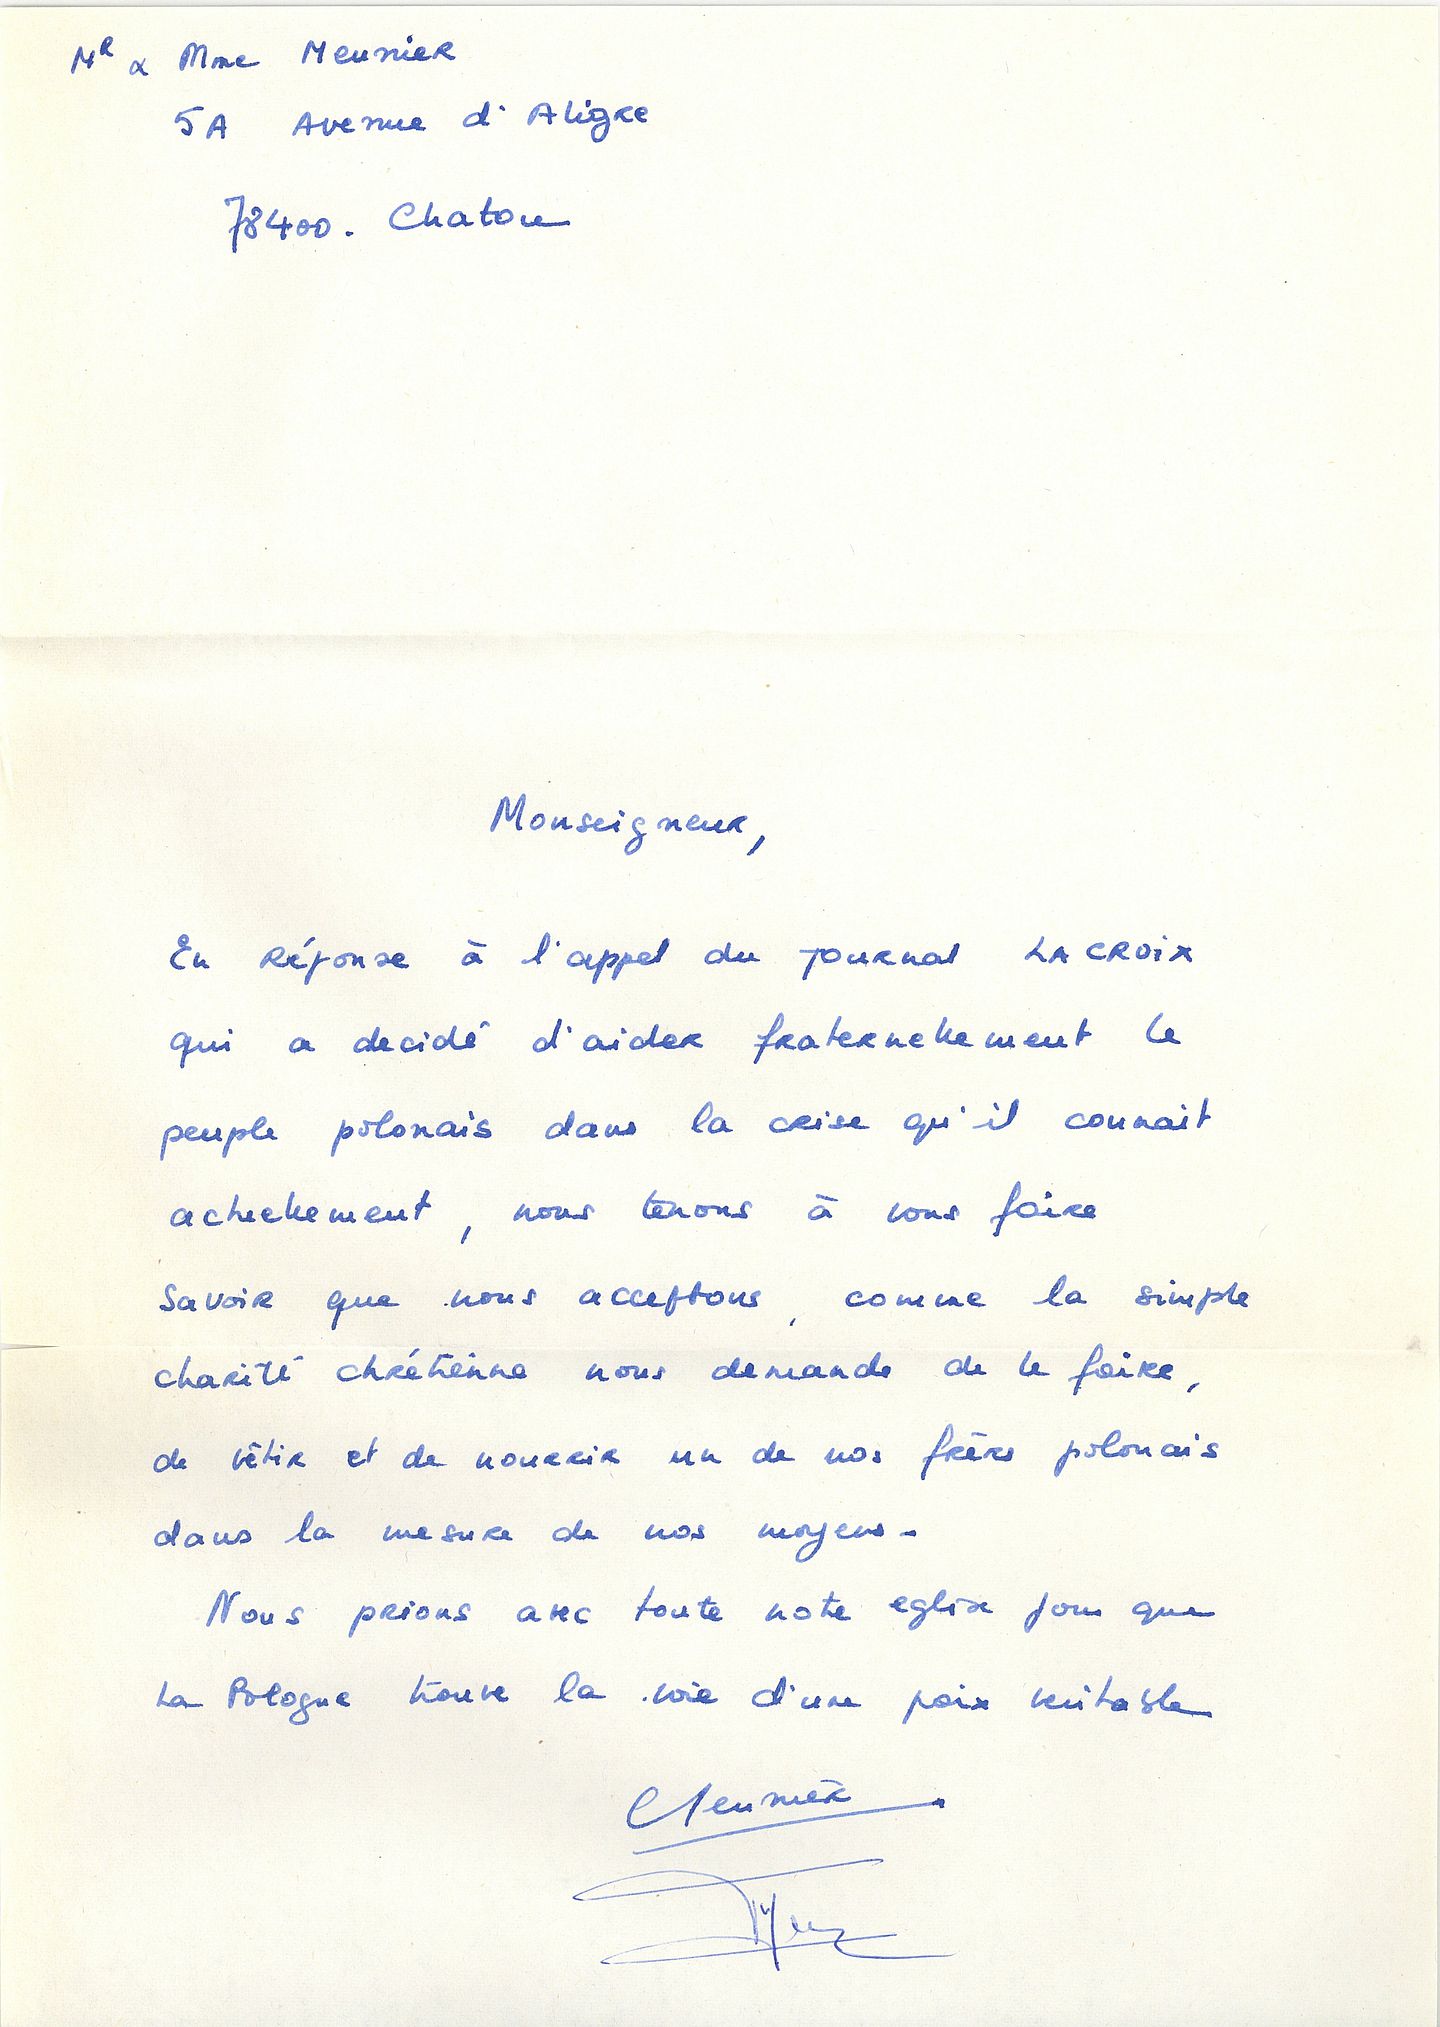 MR & Mme Meunier
5A Avenue d'Aligre
78400. Chatou
Monseigneur,
En réponse à l'appel du journal LA CROIX
qui a decidé d'aider fraternellement le
peuple polonais dans la crise qu'il connait
actuellement, nous tenons à vous faire
savoir que nous acceptons, comme la simple
charité chrétienne nous demande de le faire,
de vêtir et de nourrir un de nos frères polonais
dans la mesure de nos moyens -
Nous prions avec toute notre eglise pour que
La Pologne trouve la voie d'une paix véritable
Meunier